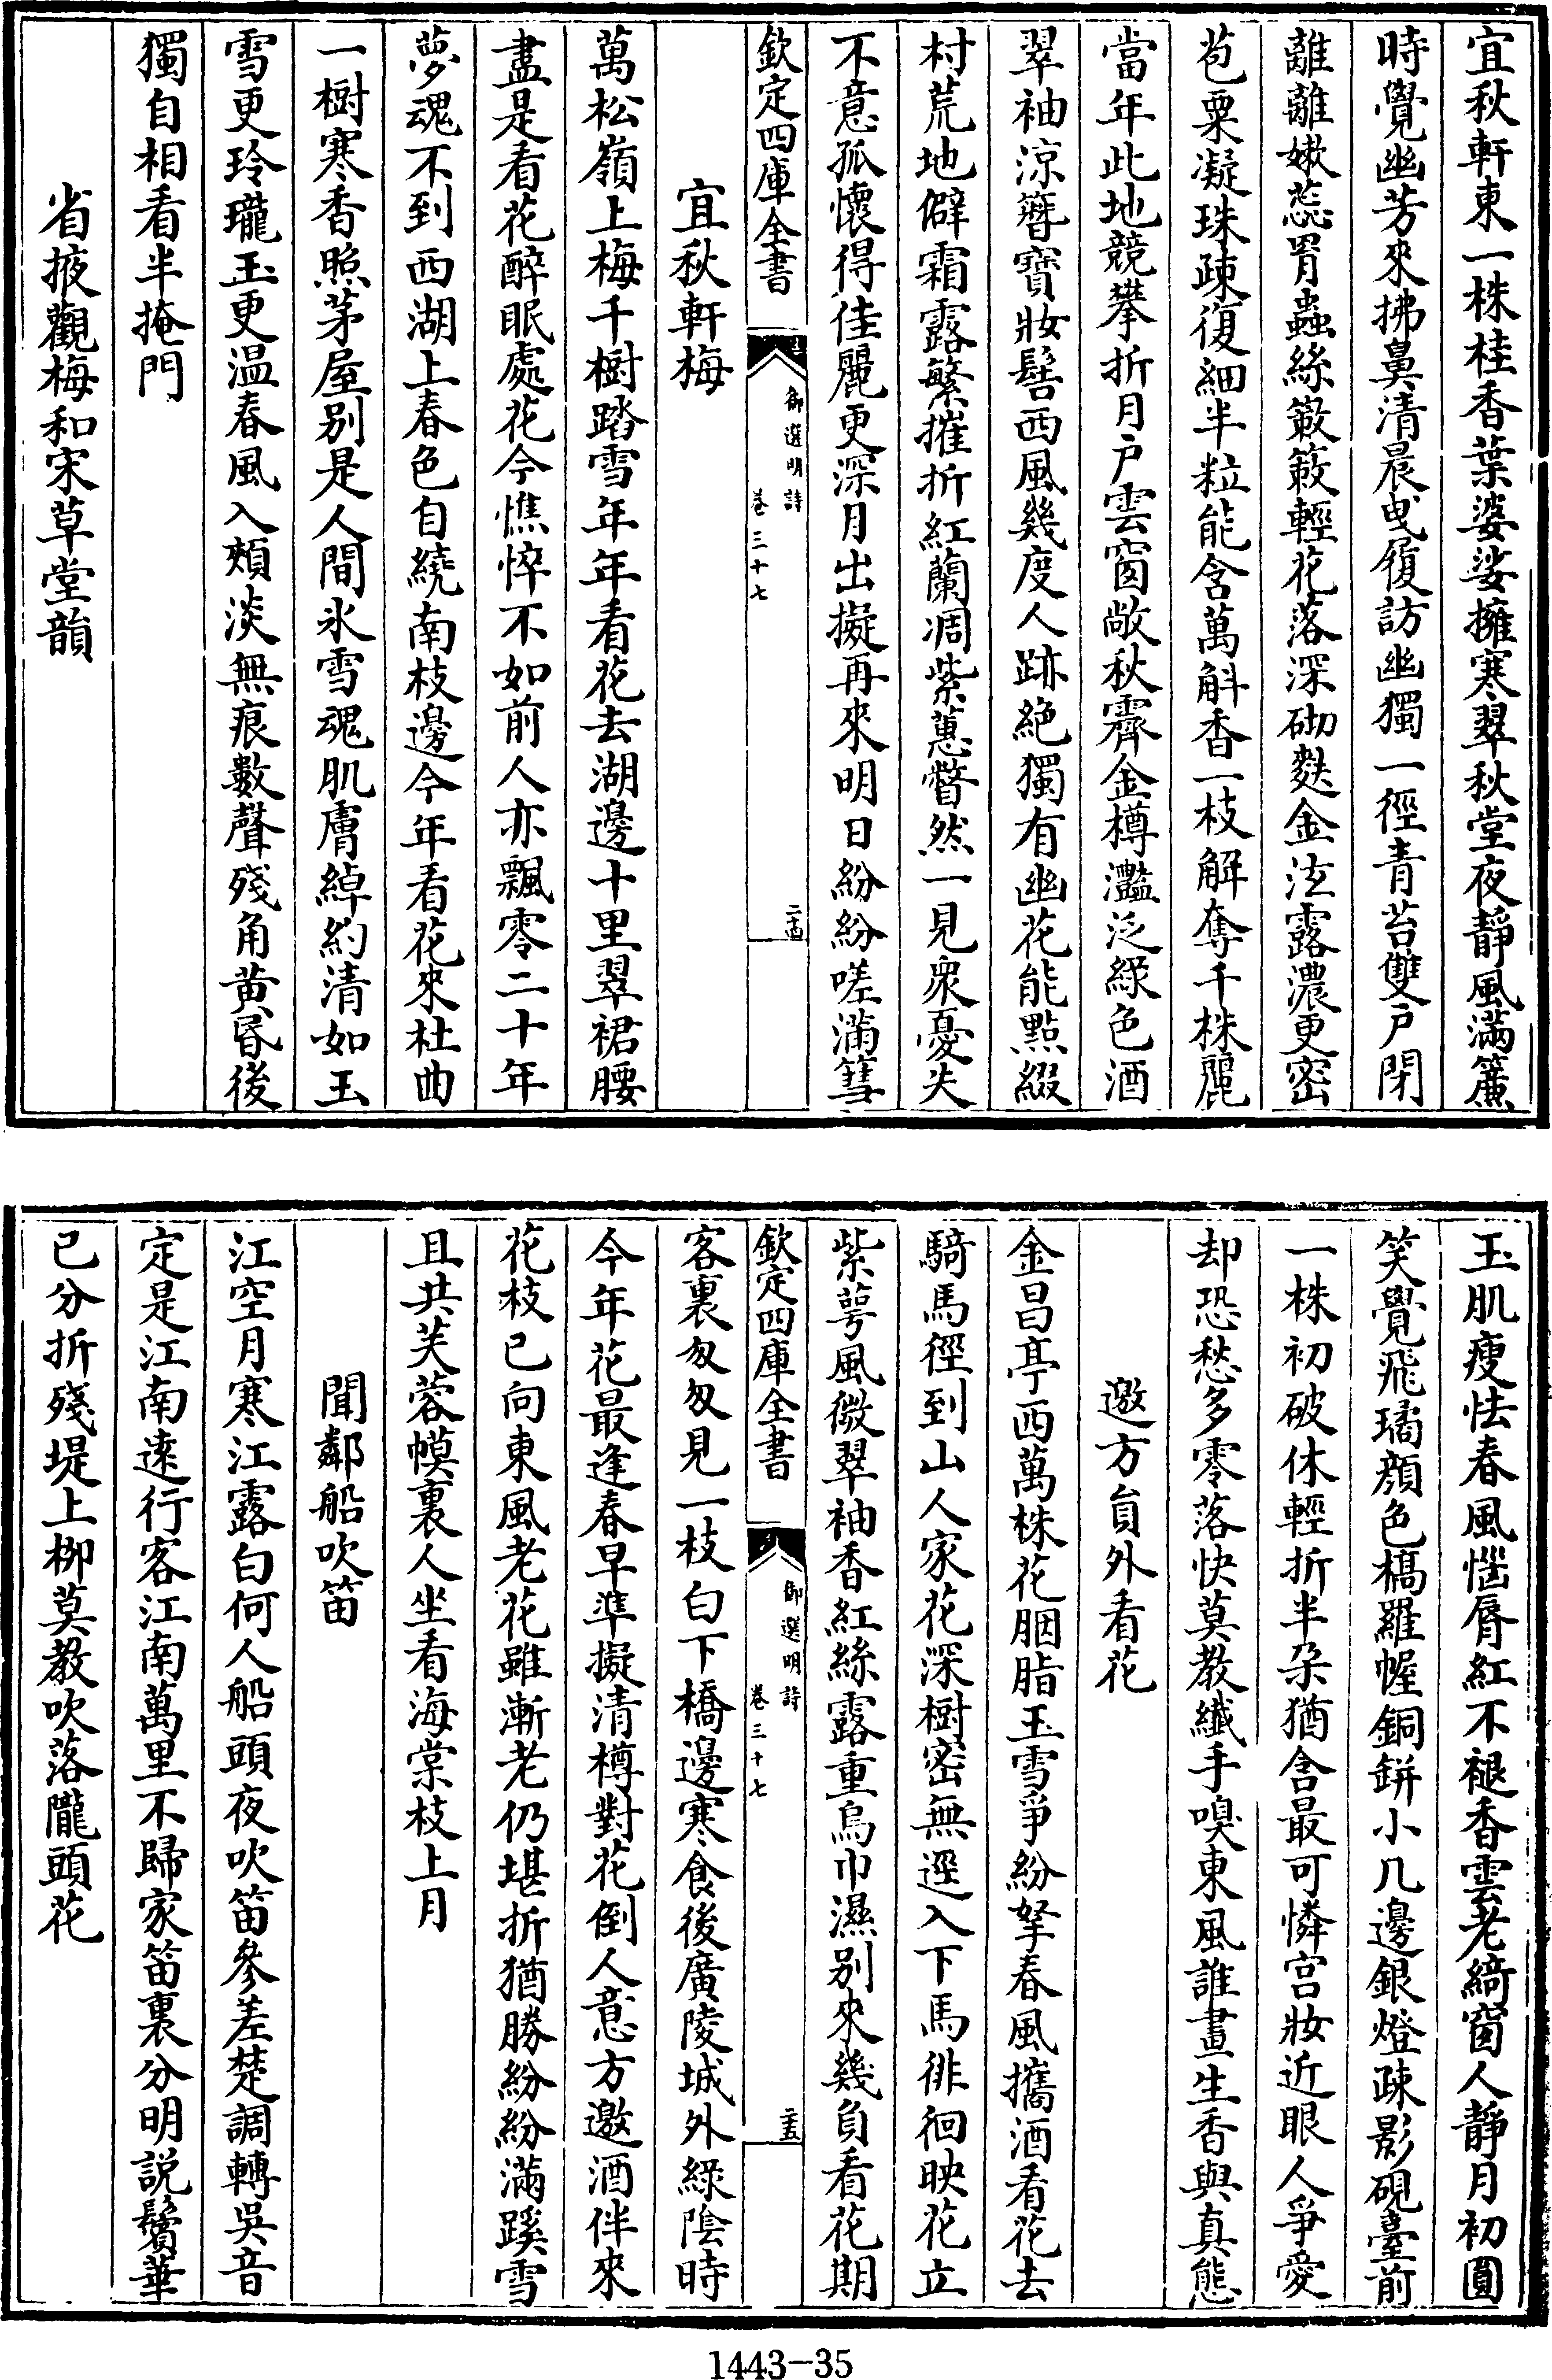 宜秋軒東一株桂香葉婆娑擁寒翠秋堂夜靜風滿簾
時覺幽芳來拂鼻清晨曵履訪幽獨一徑青苔雙戸閉
離離嫰蕊罥蟲絲簌簌輕花落深砌麩金泫露濃更密
苞粟凝珠疎復細半粒能含萬斛香一枝解奪千株麗
當年此地競攀折月戸雲窗敞秋霽金樽灩泛綠色酒
翠袖涼簪寶妝髻西風幾度人跡絶獨有幽花能點綴
村荒地僻霜露繁摧折紅蘭凋紫蕙瞥然一見衆憂失
不意孤懷得佳麗更深月出擬再來明日紛紛嗟滿篲
欽定四庫全書
御選明詩
卷三十七
二十四
宜秋軒梅
萬松嶺上梅千樹踏雪年年看花去湖邊十里翠裙腰
盡是看花醉眠處花今憔悴不如前人亦飄零二十年
夢魂不到西湖上春色自繞南枝邊今年看花來杜曲
一樹寒香照茅屋别是人間氷雪魂肌膚綽約清如玉
雪更玲瓏玉更温春風入頰淡無痕數聲殘角黄昏後
獨自相看半掩門
省掖觀梅和宋草堂韻
玉肌瘦怯春風惱脣紅不褪香雲老綺窗人靜月初圓
笑覺飛璚顔色槁羅幄銅缾小几邊銀燈疎影硯臺前
一株初破休輕折半朶猶含最可憐宫妝近眼人爭愛
却恐愁多零落快莫教纖手嗅東風誰畫生香與真態
邀方員外看花
金昌亭西萬株花胭脂玉雪爭紛拏春風攜酒看花去
騎馬徑到山人家花深樹密無逕入下馬徘徊映花立
紫萼風微翠袖香紅絲露重烏巾濕别來幾負看花期
欽定四庫全書
御選明詩
卷三十七
二十五
客裏匆匆見一枝白下橋邊寒食後廣陵城外綠陰時
今年花最逢春早準擬清樽對花倒人意方邀酒伴來
花枝已向東風老花雖漸老仍堪折猶勝紛紛滿蹊雪
且共芙蓉幙裏人坐看海棠枝上月
聞鄰船吹笛
江空月寒江露白何人船頭夜吹笛參差楚調轉吳音
定是江南逺行客江南萬里不歸家笛裏分明説鬢華
已分折殘堤上柳莫教吹落隴頭花
1443-35